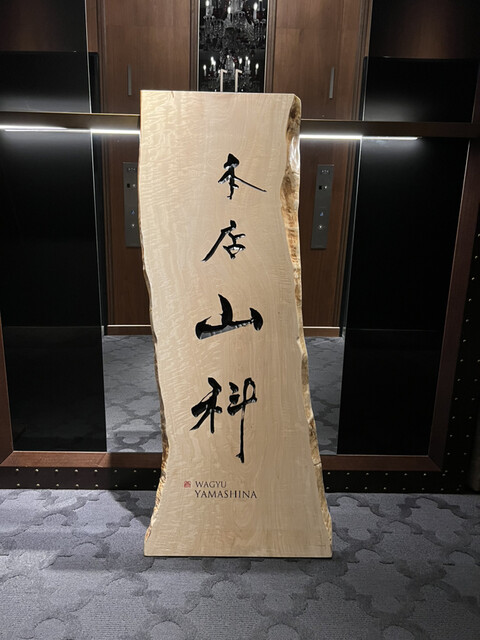 本店
山科
WAGYU
YAMASHINA